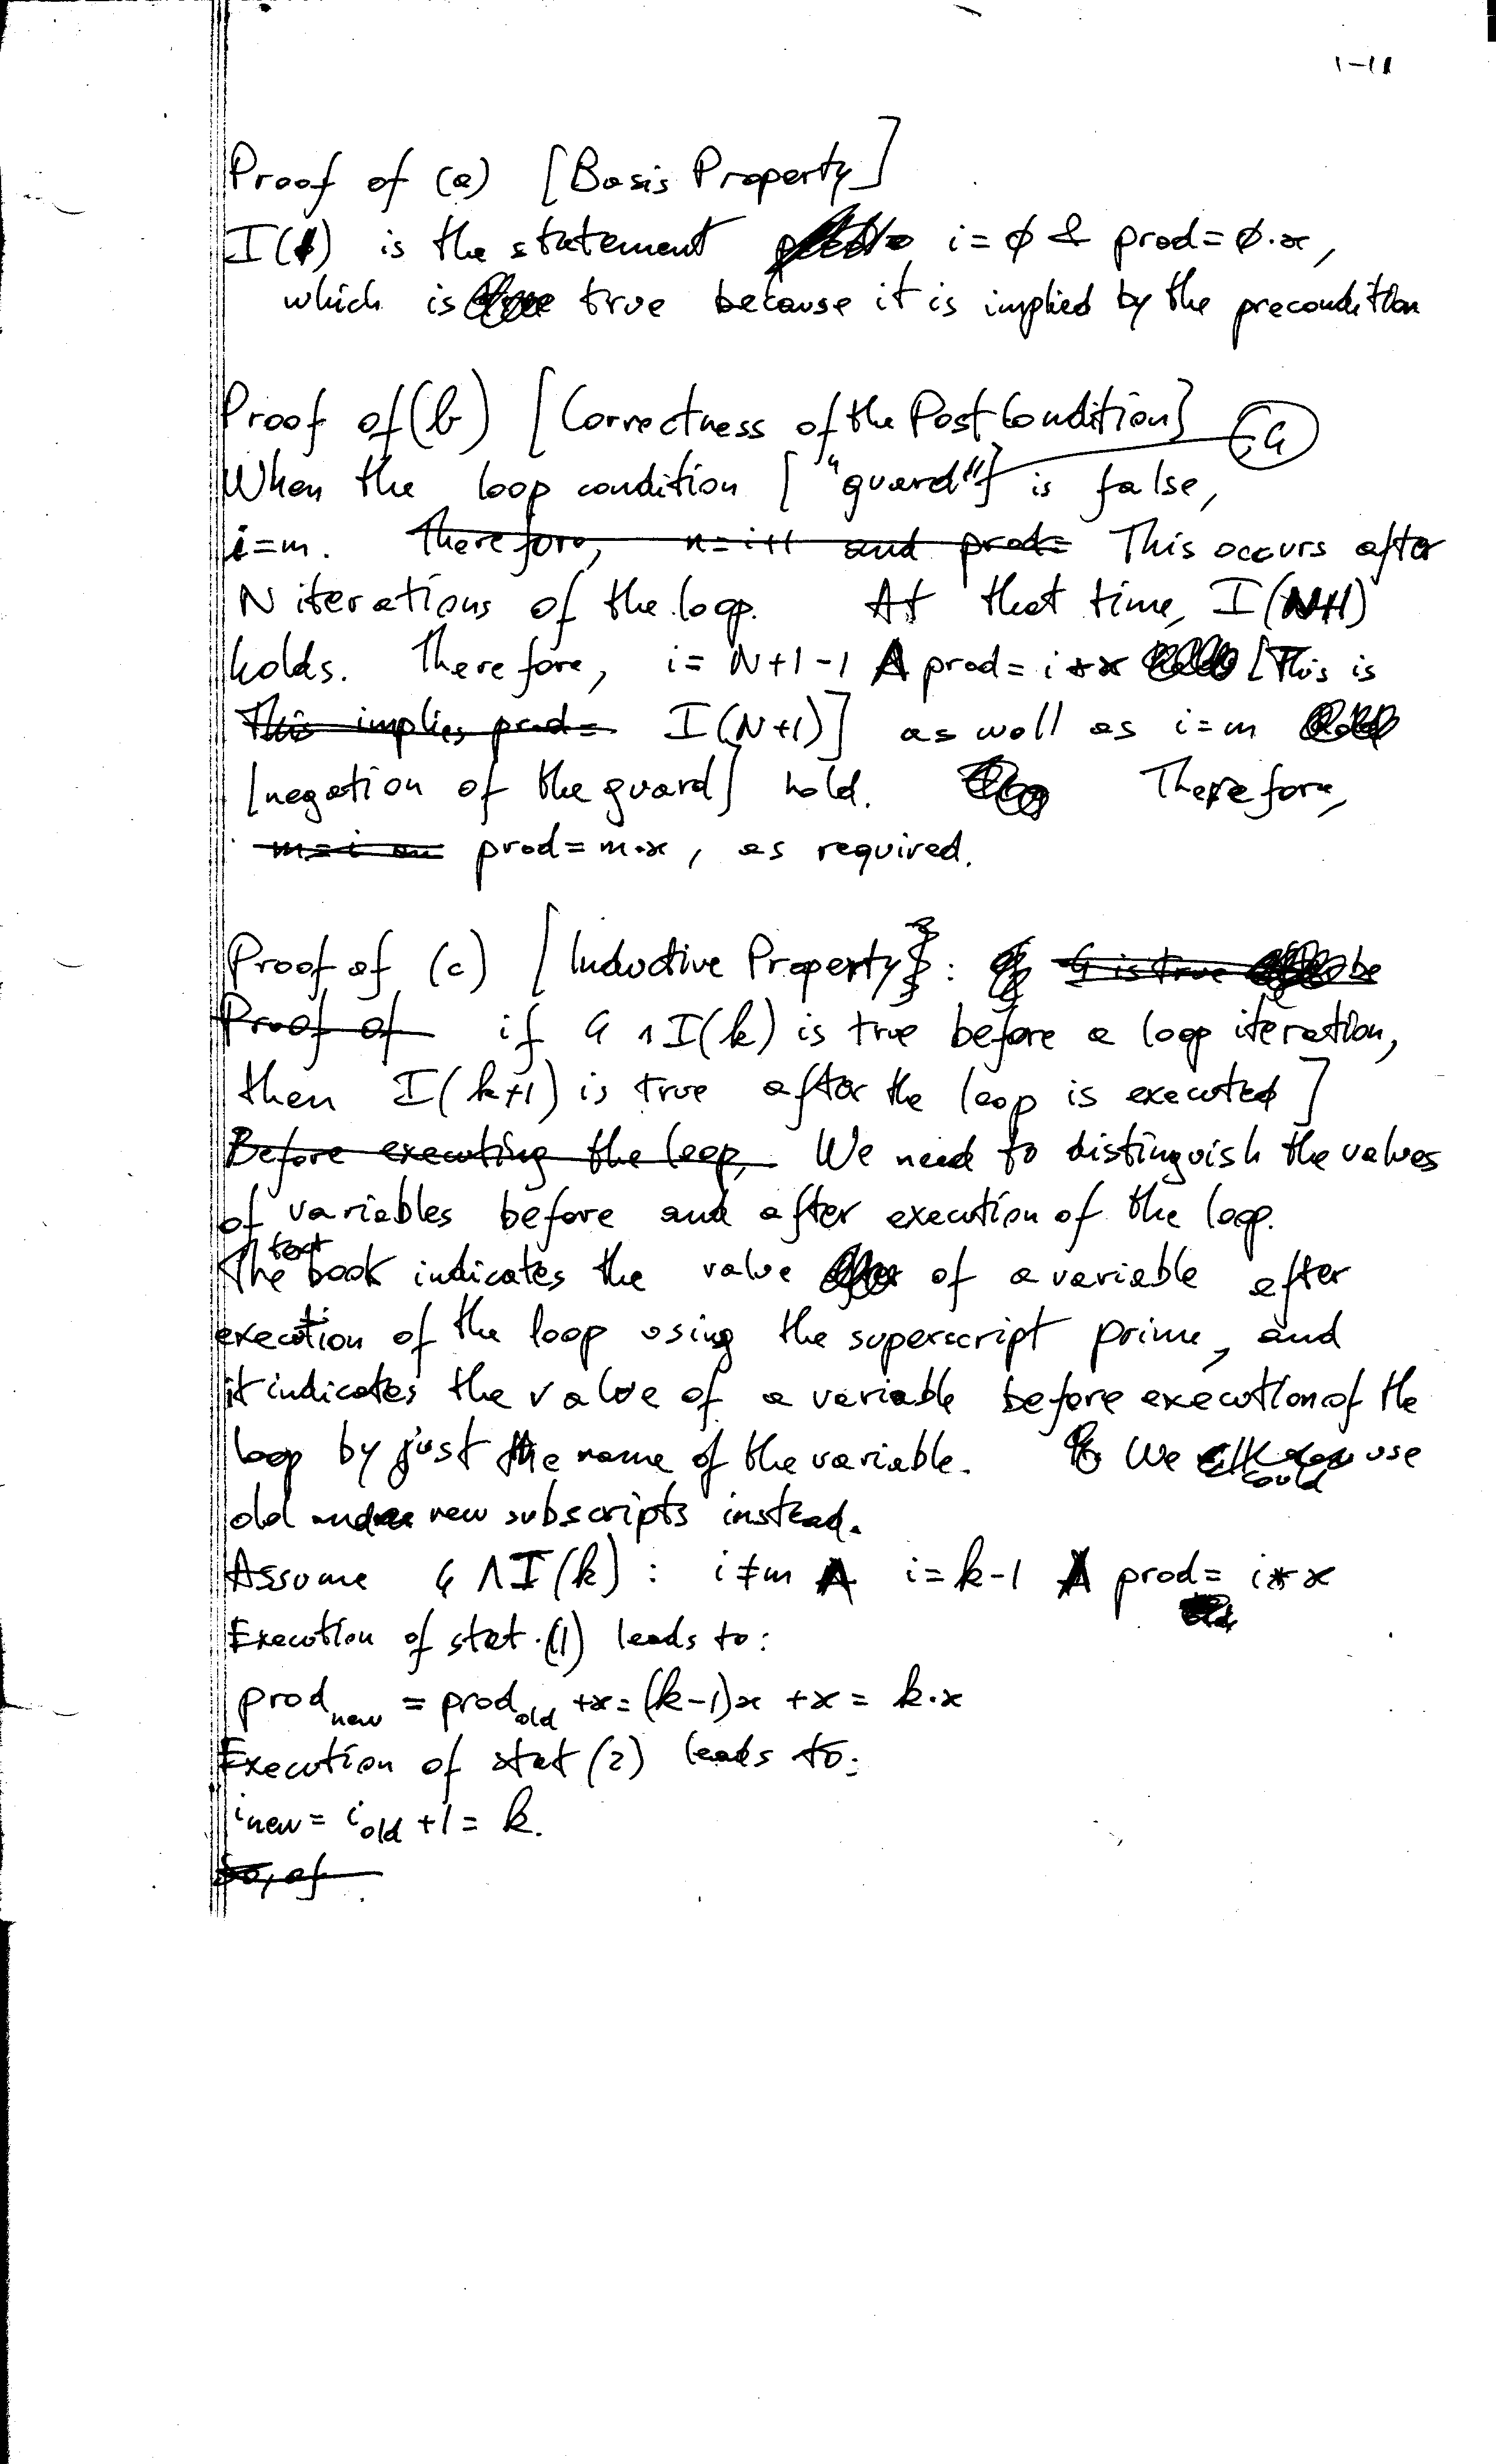 1-11
Proof of (a) [Basis Property]
I(1) is the statement i=∅ & prod=∅·x,
which is true because it is implied by the precondition
Proof of (b) [Correctness of the Post Condition]
G
When the loop condition ["guard"] is false,
i=m. ~~Therefore, n=i+1 and prod=~~ This occurs after
N iterations of the loop. At that time, I(N+1)
holds. Therefore, i=N+1-1 ∧ prod=i*x [This is
~~This implies prod=~~ I(N+1)] as well as i=m
[negation of the guard] hold. Therefore,
~~m=i an~~ prod=m·x, as required.
Proof of (c) [Inductive Property: ~~G is true be~~
~~Proof of~~ if G ∧ I(k) is true before a loop iteration,
then I(k+1) is true after the loop is executed]
~~Before executing the loop,~~ We need to distinguish the values
of variables before and after execution of the loop.
The text book indicates the value of a variable after
execution of the loop using the superscript prime, and
it indicates the value of a variable before execution of the
loop by just the name of the variable. We could use
old and new subscripts instead.
Assume G ∧ I(k): i≠m ∧ i=k-1 ∧ prod=i*x
Execution of stat.(1) leads to:
prod_new = prod_old +x=(k-1)x +x= k·x
Execution of stat (2) leads to:
i_new = i_old +1= k.
~~So, af~~